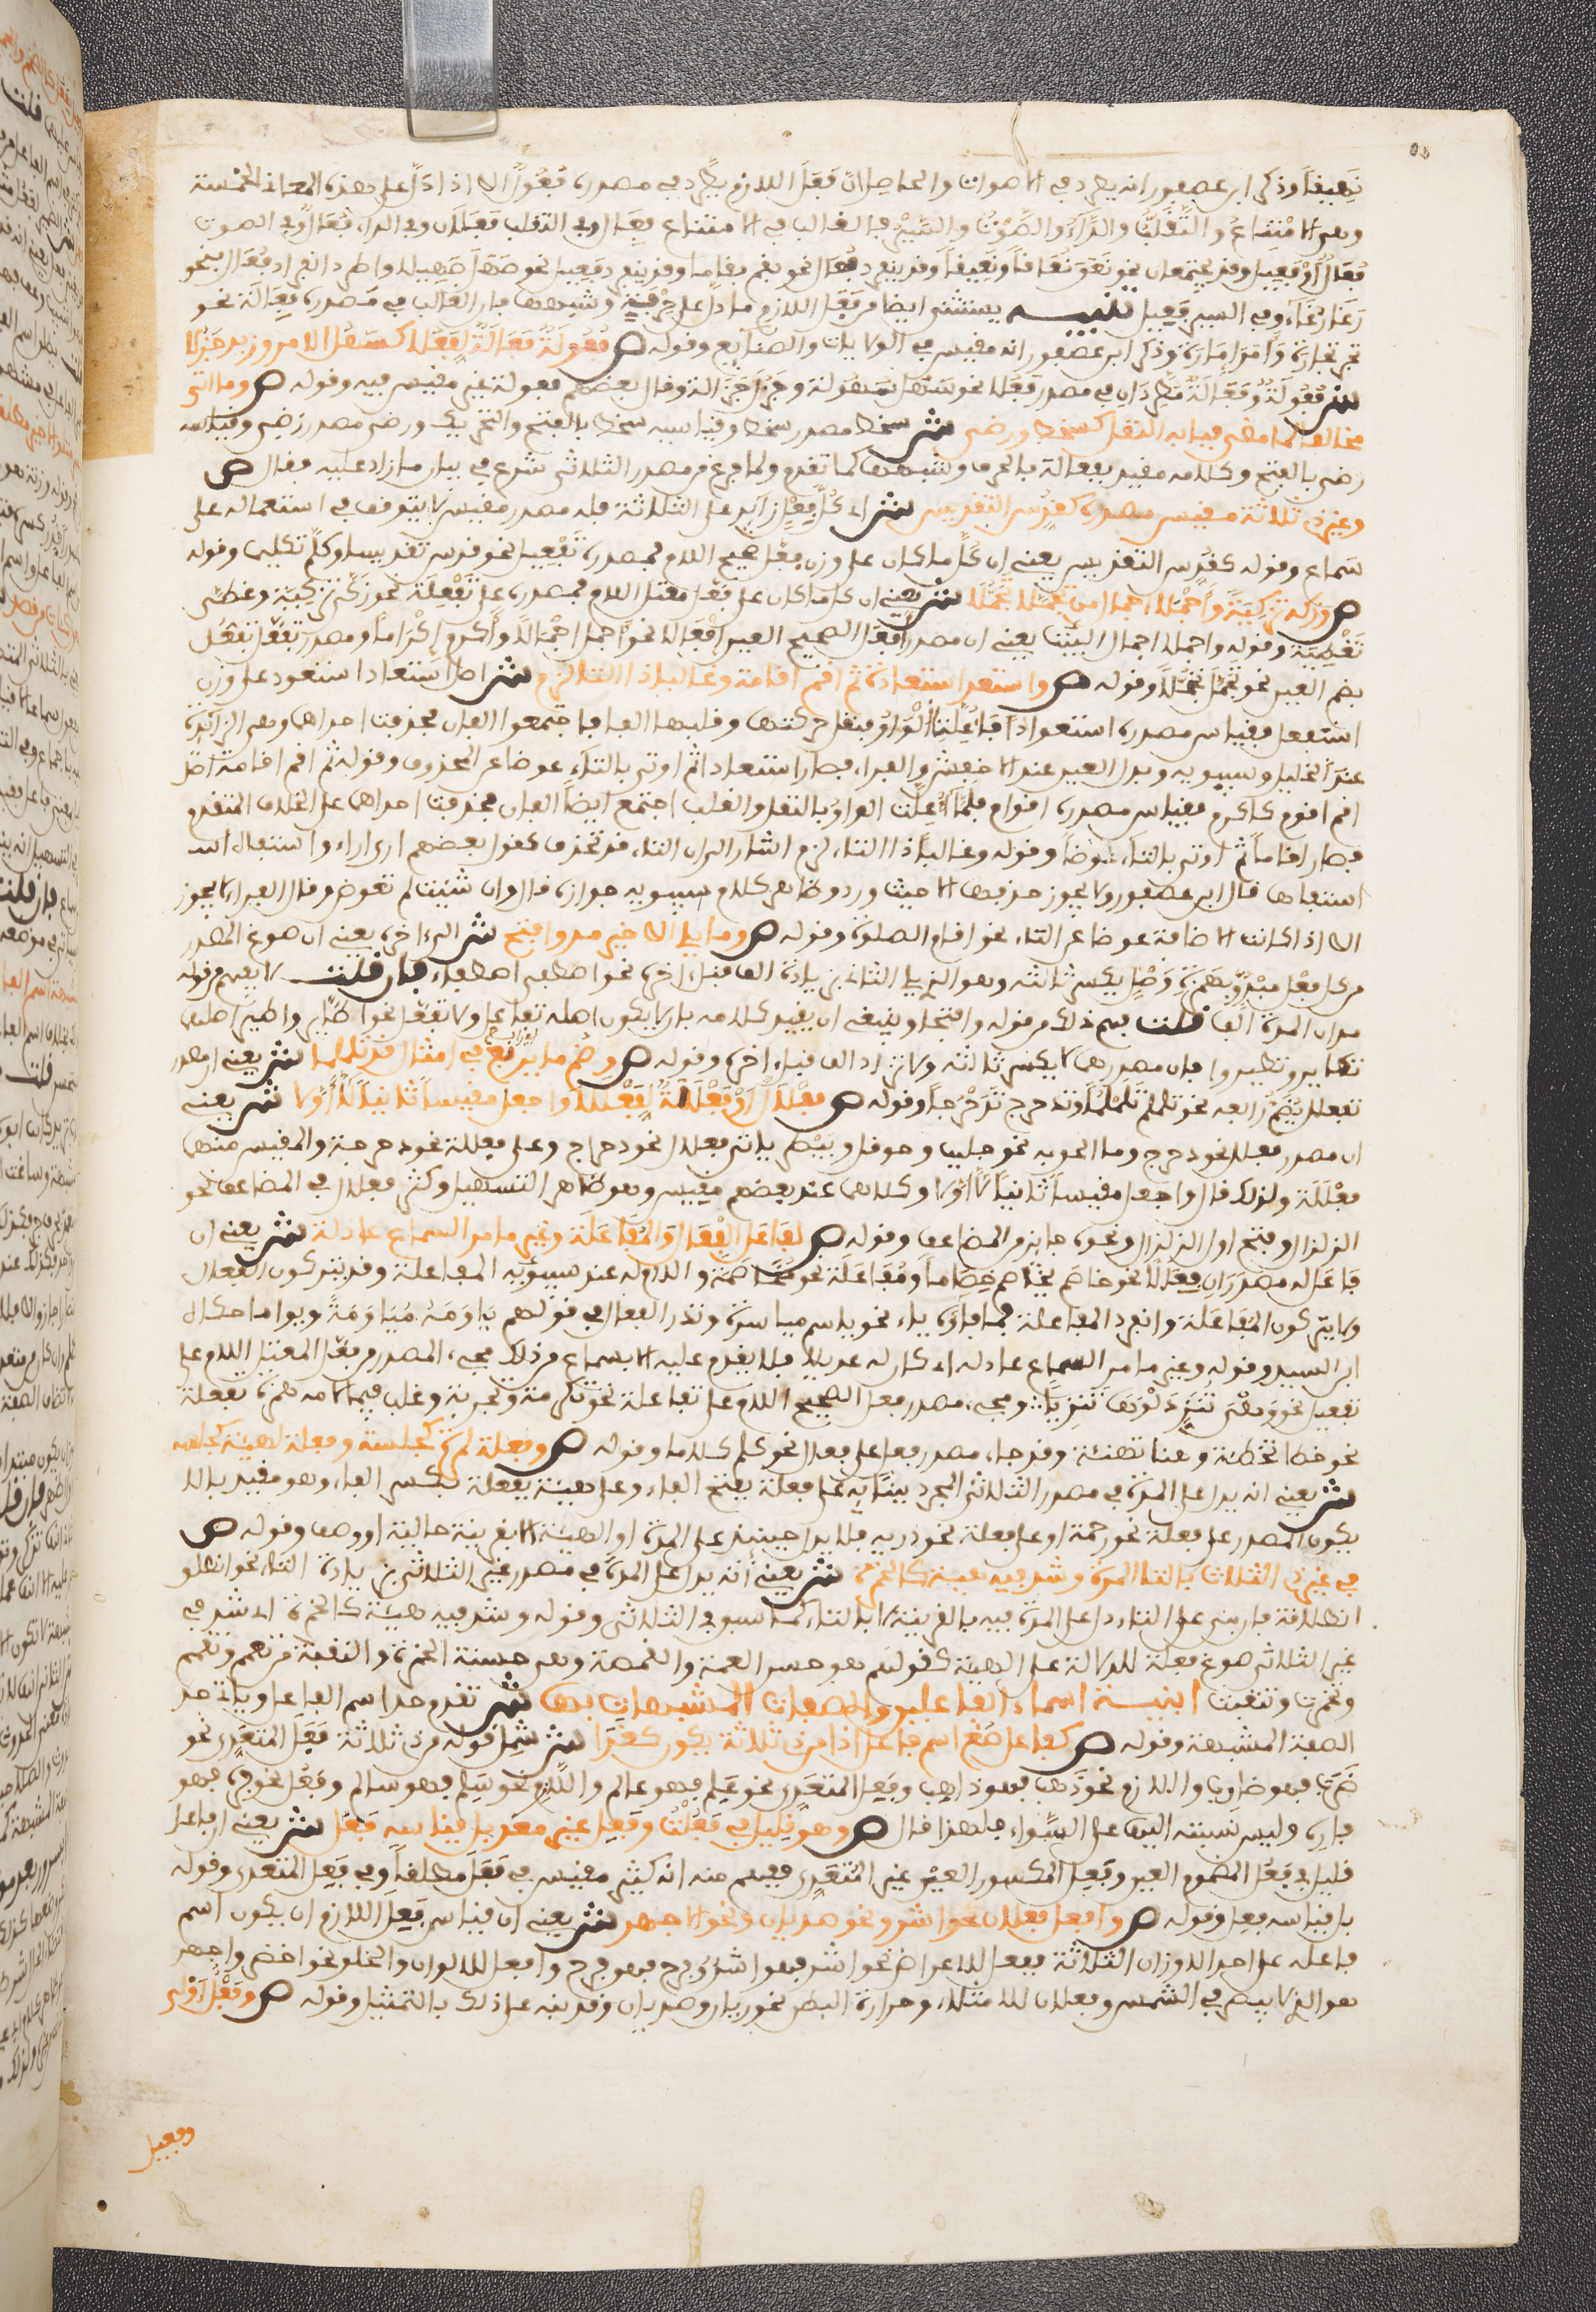 نَعِيقا وذكر ابن عصفور انه يطرد في الاصوات والحاصل ان فَعَلَ اللازم يطّرد في مصدره فُعُولٌ الا اذا دَلّ على هذه المعاني الخمسة
وهي الامْتناعُ والتَّقَلُّبُ والدَّاءُ والصَّوْتُ والسَّيْرُ فالغالب في الامتناع فِعَال وفي التقلب فَعَلَان وفي الداء فُعَال وفي الصوت
فُعَالٌ اوْ فَعِيل وقد يجتمعان نحو نَعَقَ نُعَاقاً ونَعِيقاً وقد ينفرد فُعَال نحو بغم بغاما وقد ينفرد فعيل نحو صَهَلَ صَهِيلا واطرد انفراد فُعَال في نحو
رَغَا رُغَاءً وفي السير فَعِيل تنبيه يستثنى ايضا من فَعَلَ اللازم ما دل على حِرْفَةٍ وشبهها فان الغالب في مَصدره فِعَالَة نحو
تجر تِجَارة وَامَرَ إمَارة وذكر ابن عصفور انه مقيس في الولايات والصنايع وقوله ص فُعُولَةٌ فَعَالَةٌ لِفَعُلا كسَهُل الامر وزيد جَزُلا
ش فُعُولَةٌ وفَعَالَةٌ مطّردَانِ في مصدر فَعُلَ نحو سَهُل سُهُولة وجَزُل جَزَالة وقال بعضهم فعولة غير مقيس فيه وقوله ص وما اتى
مخالفا لما مضى فبابه النقل كسخط ورضى ش سخط مصدر سخط وقياسه سخط بالفتح والتحريك ورضى مصدر رَضِيَ وقياسه
رضى بالفتح وكلامه مقيد بفعالة بالحرف وشبهها كما تقدم ولما فرغ من مصدر الثلاثي شرع في بيان ما زاد عليه فقال ص
وغير ذي ثلاثة مقيس مصدره كقدس التقديس ش اي كُلّ فِعْلٍ زايد على الثلاثة فله مصدر مقيس لا يتوقف في استعماله على
سَماع وقوله كقُدِّس التقديس يعني ان كلَّ ما كان على وزن فعَّل صحيح اللام فمصدره تَفْعِيل نحو قدس تقديسا وكلَّم تكليما وقوله
ص وزكه تزكية وأجملا اجمال من تجمّلا تجمّلا ش يعني ان كل ما كان على فَعَّل معتل اللام فمصدره على تَفْعِلَة نحو زكَّى تزكية وغطَّى
تَغْطِيَة وقوله واجملا اجمال البيت يعني ان مصدر أفعَل الصحيح العين افعال نحو اجمل اجْمَالاً وأكرم إكْرَاماً ومصدر تَفَعَّل تفعُّل
بضم العين نحو تَجَمَّل تَجَمُّلاً وقوله ص واستعذ استعاذة ثم اقم اقامة وغالبا ذا التا لزم ش اصل استعاذ استعوذ على وزن
استفعل فقياس مصدره استعواذا فأُعِلَّتِ الْوَاوُ بنقل حركتها وقلبها الفا فاجتمعوا الفان فحذفت احداهما وهي الزايدة
عند الخليل وسيبويه وبدل العين عند الاخفش والفراء فصار استعاذا ثم اوتي بالتاء عوضا عن المحذوف وقوله ثم اقم اقامة اصل
اقم اقوم كاكرم فقياس مصدره اقوام فلمّا أُعِلّت الواوُ بالنقل والقلب اجتمع ايضا الفان فحذفت احداهما على الخلاف المتقدم
فصار اقاماً ثم اوتي بالتاء عوضاً وقوله وغالباً ذا التاء لزم اشار الى ان التاء قد تحذف كقول بعضهم ارى اراء واستفاه است
استفاها قال ابن عصفور ولا يجوز حذفها الا حيث ورد وظاهر كلام سيبويه جوازه قال وان شئت لم تعوض وقال الفراء لا يجوز
الا اذا كانت الاضافة عوضا عن التاء نحو اقام الصلوة وقوله ص وما يلي الاخير مد وافتح ش الى اخره يعني ان صوغ المصدر
من كل فِعْلٍ مبْدُوٍّ بهَمزةِ وَصْلٍ بكسر ثالثه وهو الذي يلي الثاني بزيادة الف قبل اخره نحو اصطفى اصطفاء فان قلت لا يفهم من قوله
مد ان المدة الف قلت فهم ذلك من قوله وافتحا وينبغي ان يقيد كلامه بان لا يكون اصله تفاعل ولا تفعّل نحو اطّاير واطيّر اصلهما
تطاير وتطير وا فان مصدرهما لا يكسر ثالثه ولا تزاد الف قبل اخره وقوله ص وضم ما يربع في امثال قد تلملما ش يعني ان مصدر
تفعلل يُضَمُّ رابعه نحو تلملم تَلَمْلُماً وتدحرج تَدَحْرُجاً وقوله ص فِعْلَالٌ اوْ فَعْلَلَةٌ لِفَعْلَلا واجعل مقيساً ثانياً لا أوّلا ش يعني
ان مصدر فعلل نحو دحرج وما الحق به نحو جلبب وحوقل وبيْطر ياتي فعلال نحو دحراج وعلى فعللة نحو دحرجة والمقيس منهما
فعْلَلَة ولذلك قال واجعل مقيساً ثانياً لا أوّلا وكلاهما عند بعضهم مقيس وهو ظاهر التسهيل وكثر فعلال في المضاعف نحو
الزلزال وفتح اول الزلزال ونحوه جايز في المضاعف وقوله ص لفاعل الفعال والمُفاعَلَة وغير ما مر السماع عادله ش يعني ان
فاعَل له مصدَرَان فِعَال نحو خاصم يخاصم خِصَاماً ومُفَاعَلَة نحو مُخَاصَمة واللازم له عند سيبويه المفاعلة وقد يتركون الفعال
ولا يتركون المُفَاعَلَة وانفرد المفاعلة فيما فاؤه ياء نحو ياسر مياسرة وندر الفعال في قولهم ياوَمَهُ مُيَاوَمَةً ويِوَاما حكاه
ابن السيد وقوله وغير ما مر السماع عادله اي كان له عديلا فلا يقدم عليه الا بسماع فمن ذلك مجيء المصدر من فعّل المعتل اللام على
تفعيل نحو وهْيَ تنَزِّي دَلْوَهَا تَنْزِيّا ومجيء مصدر فعل الصحيح اللام على تفعلة نحو تكرمة وتجربة وغلب فيما لامه همزة تفعلة
نحو خطا تخطئة وهنا تهنئة وقد جاء مصدر فعل على فعال نحو كلم كلاما وقوله ص وفعلة لمرة كجلسة وفعلة لهيئة كجلسه
ش يعني انه يدل على المرة في مصدر الثلاثي المجرد ببنائه على فعلة بفتح الفاء وعلى هيئة بفعلة بكسر الفاء وهو مقيد بالا
يكون المصدر على فعلة نحو رحمة او على فعلة نحو دربة فلا يدل حينئذ على المرة او الهيئة الا بقرينة حالية او وصف وقوله ص
في غير ذي الثلاث بالتا المرة وشذ فيه هيئة كالخمرة ش يعني انه يدل على المرة في مصدر غير الثلاثي بزيادة التاء نحو انطلق
انطلاقة فان بني على التاء دل على المرة فيه بالقرينة لا بالتاء كما سبق في الثلاثي وقوله وشذ فيه هيئة كالخمرة اي شذ في
غير الثلاثي صوغ فعلة للدلالة على الهيئة كقولهم هو حسن العمة والقمصة وهي حسنة الخمرة والنقبة من تعمم وتقمص
وتخمرت وتنقبت ابنية اسماء الفاعلين والصفات المشبهات بها ش تقدم حد اسم الفاعل وياتي حد
الصفة المشبهة وقوله ص كفاعل صُغ اسم فاعل اذا من ذي ثلاثة يكون كغذا ش شمل قوله من ذي ثلاثة فَعَل المتعدي نحو
ضَرَب فهو ضارب واللازم نحو ذَهب فهو ذاهب وفَعِل المتعدي نحو عَلِم فهو عالم واللازم نحو سَلِم فهو سالم وفَعُل نحو فره فهو
فارهٌ وليس نسبته اليها على السّواء فلهذا قال ص وهو قليل في فَعُلْتُ وفَعِل غير معدى بل قياسه فَعِل ش يعني ان فاعل
قليل في فَعُل المضموم العين وفَعِل المكسور العيْن غير المُتعدي ففهم منه انه كثير مقيس في فَعَل مطلقاً وفي فَعِل المتعدي وقوله
بل قياسه فعل وقوله ص وافعل فعلان نحو اشر ونحو صديان ونحو الاجهر ش يعني ان قياس فَعِل اللازم ان يكون اسم
فاعله على احد الاوزان الثلاثة ففعل للاعراض نحو اشر فهو اشر وفرح فهو فرح وافعل للالوان والخلق نحو اخضر واجهر
هو الذي لا يبصر في الشمس وفعلان للامتلاء وحرارة البطن نحو ريان وصديان وقد نبه على ذلك بالتمثيل وقوله ص وفَعْلٌ اوْلى
وفعيل